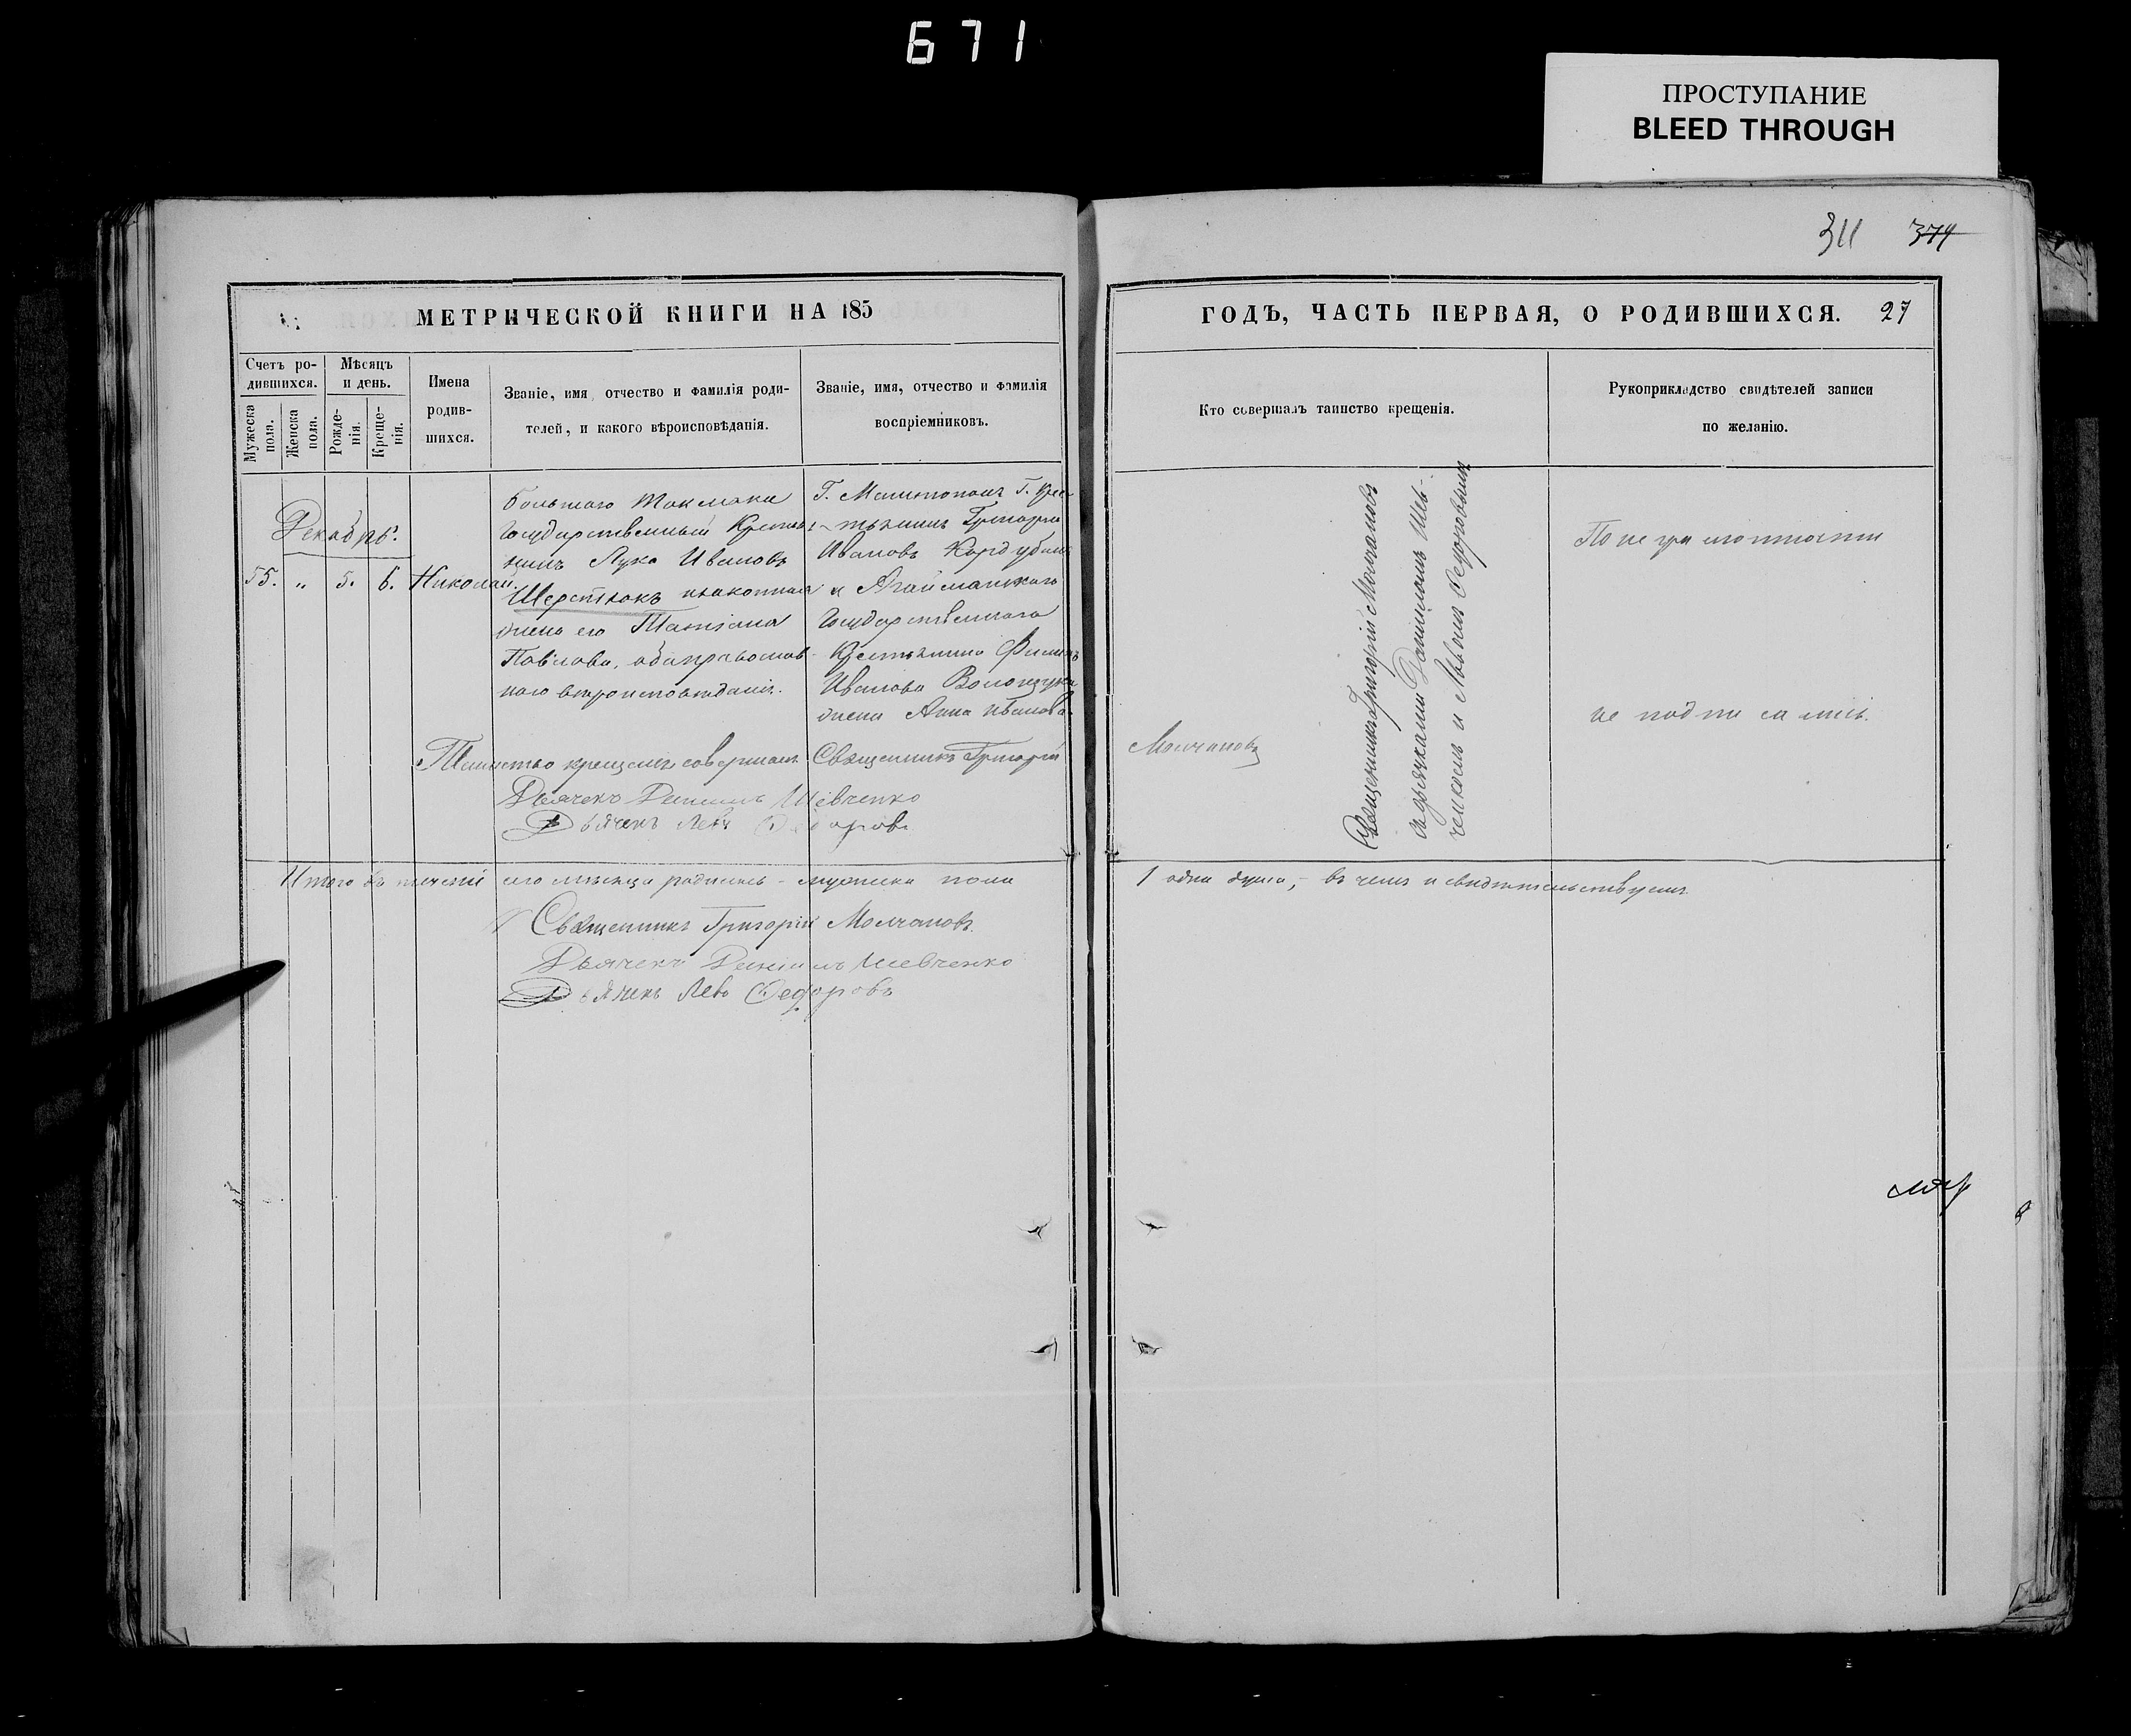 671
ПРОСТУПАНИЕ
BLEED THROUGH
311 374
МЕТРИЧЕСКОЙ КНИГИ НА 185
ГОДЪ, ЧАСТЬ ПЕРВАЯ, О РОДИВШИХСЯ. 27
Счетъ ро-
дившихся.
Мужеска
пола.
Женска
пола.
Мѣсяцъ
и день.
Рожде-
нія.
Креще-
нія.
Имена
родив-
шихся.
Званіе, имя, отчество и фамилія роди-
телей, и какого вѣроисповѣданія.
Званіе, имя, отчество и фамилія
воспріемниковъ.
Кто совершалъ таинство крещенія.
Рукоприкладство свидѣтелей записи
по желанію.
Декабрь.
55. „ 5. 6. Николай.
большаго Токмака
Государственный Крестья
нинъ Лука Ивановъ
Шерстюкъ и законная
жена его Татіана
Павлова, оба православ-
наго вѣроисповѣданія.
Г. Мелитополя Г. Крес-
тьянинъ Григорій
Ивановъ
и Агайманскаго
Государственнаго
Крестьянина
Иванова
жена Анна Иванова.
Священникъ Григорій Молчановъ
съ дьячками Даніиломъ Шев-
ченкомъ и Львомъ Федоровымъ
По неграмотности
не подписались.
Таинство крещенія совершалъ Священникъ Григорій
Молчановъ
Дьячекъ Даніилъ Шевченко
Дьячекъ Левъ Федоровъ
Итого въ теченіи сего мѣсяца родилось - мужеска пола
1 одна душа, - въ чемъ и свидѣтельствуемъ
Священникъ Григорій Молчановъ.
Дьячекъ Даніилъ Шевченко
Дьячекъ Левъ Федоровъ